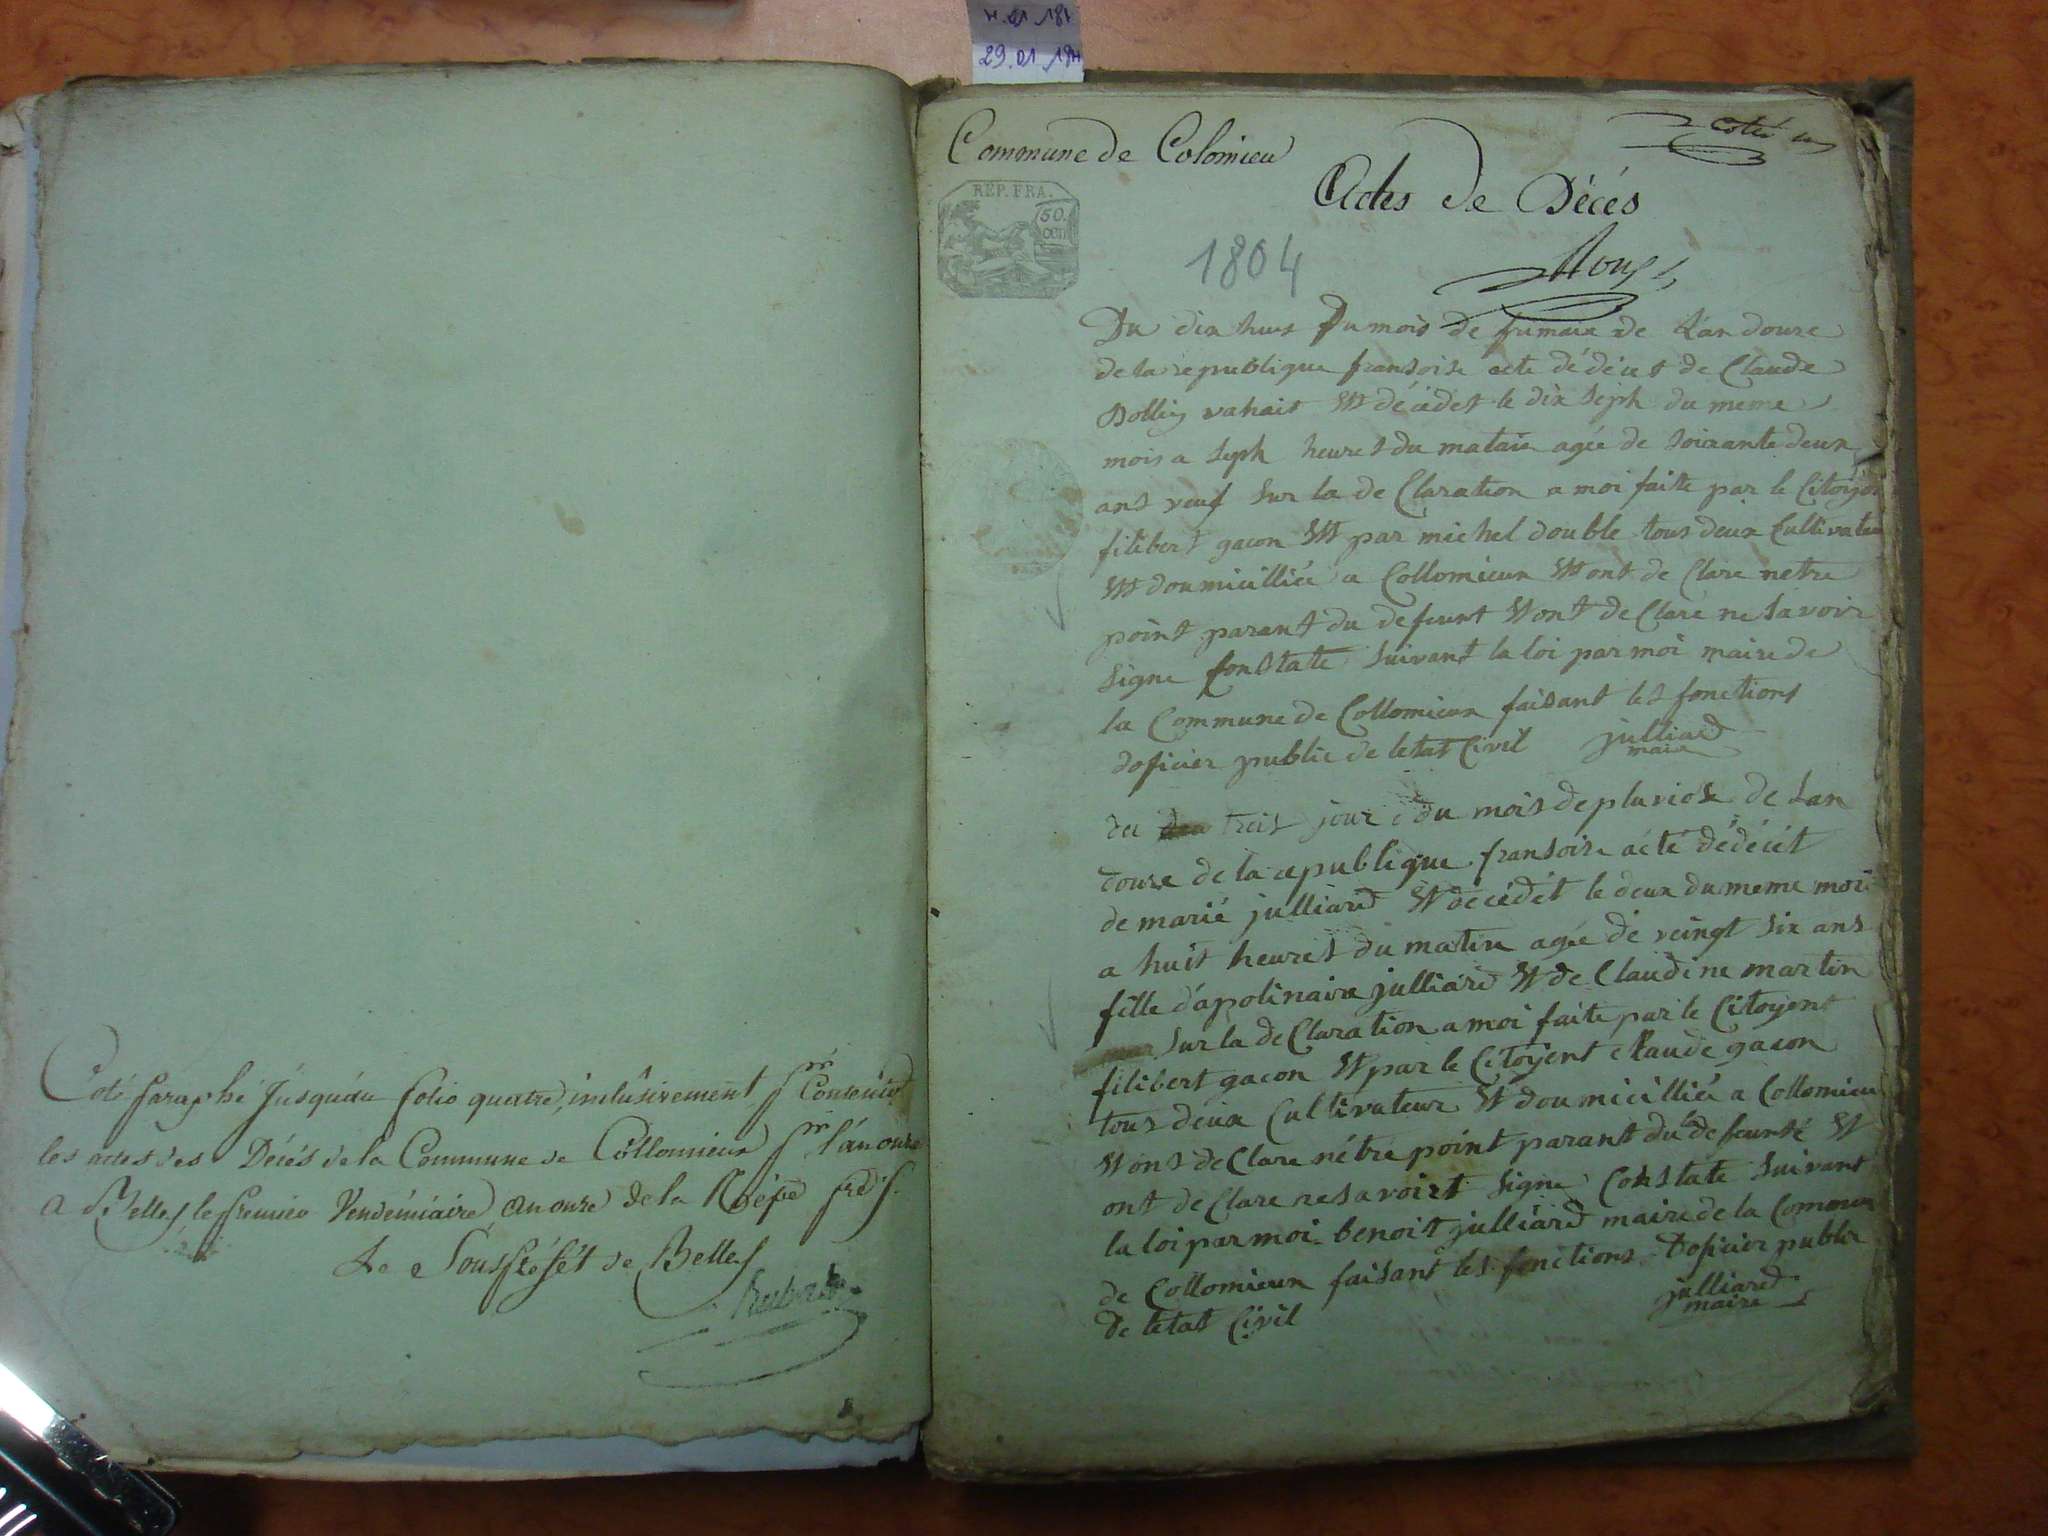 29.01.18
Coté paraphé jusqu'au folio quatre, inclusivement pr
les actes des Décés de la Commune de Collomieux pr l'an onze
a Belley le premier Vendémiaire, an onze de la Répe
Le Sous préfét de Belley
Commune de Colomieu
Coté
REP. FRA.
50. cen
Actes de Décés
1804
Du dix huit Du mois de frimaire de Lan douze
de la republique fransoise acte dédécet de Claude
décédet le dix seph du meme
mois a seph heures du matain agée de soixante deux
ans veuf sur la de Claration a moi faite par le Citoyen
filibert gacon Et par michel double tous deux Cultivateur
Et doumicilliée a Collomieux Et ont de Clare netre
point parant du defeunt Et ont de Claré ne savoir
signe Constate suivant la loi par moi maire de
la Commune de Collomieux faisant les fonctions
doficier public de letat Civil julliard
maire
du trois jour du mois de pluviose de Lan
douze de la republique fransoise acté dédécét
de marié julliard Et décédét le deux du meme moi
a huit heures du matin agée de veingt six ans
fille d'apolinaire julliard Et de Claudine martin
sur la de Claration a moi faite par le Citoyent
filibert gacon Et par le Citoyent Claude gacon
tous deux Cultivateur Et doumicilliée a Collomieu
Et ont de Clare nétre point parant du la defeunté Et
ont de Clare ne savoirt signé Constate suivant
la loi par moi benoit julliard maire de la Commun
de Collomieux faisant les fonctions Doficier public
de letat Civil julliard
maire